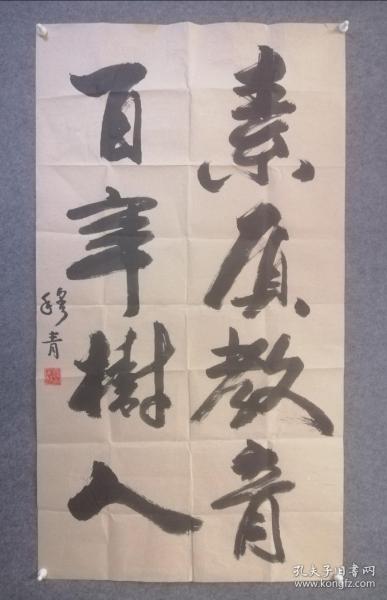 素质教育
百年樹人
穆青
孔夫子旧书网
www.kongfz.com